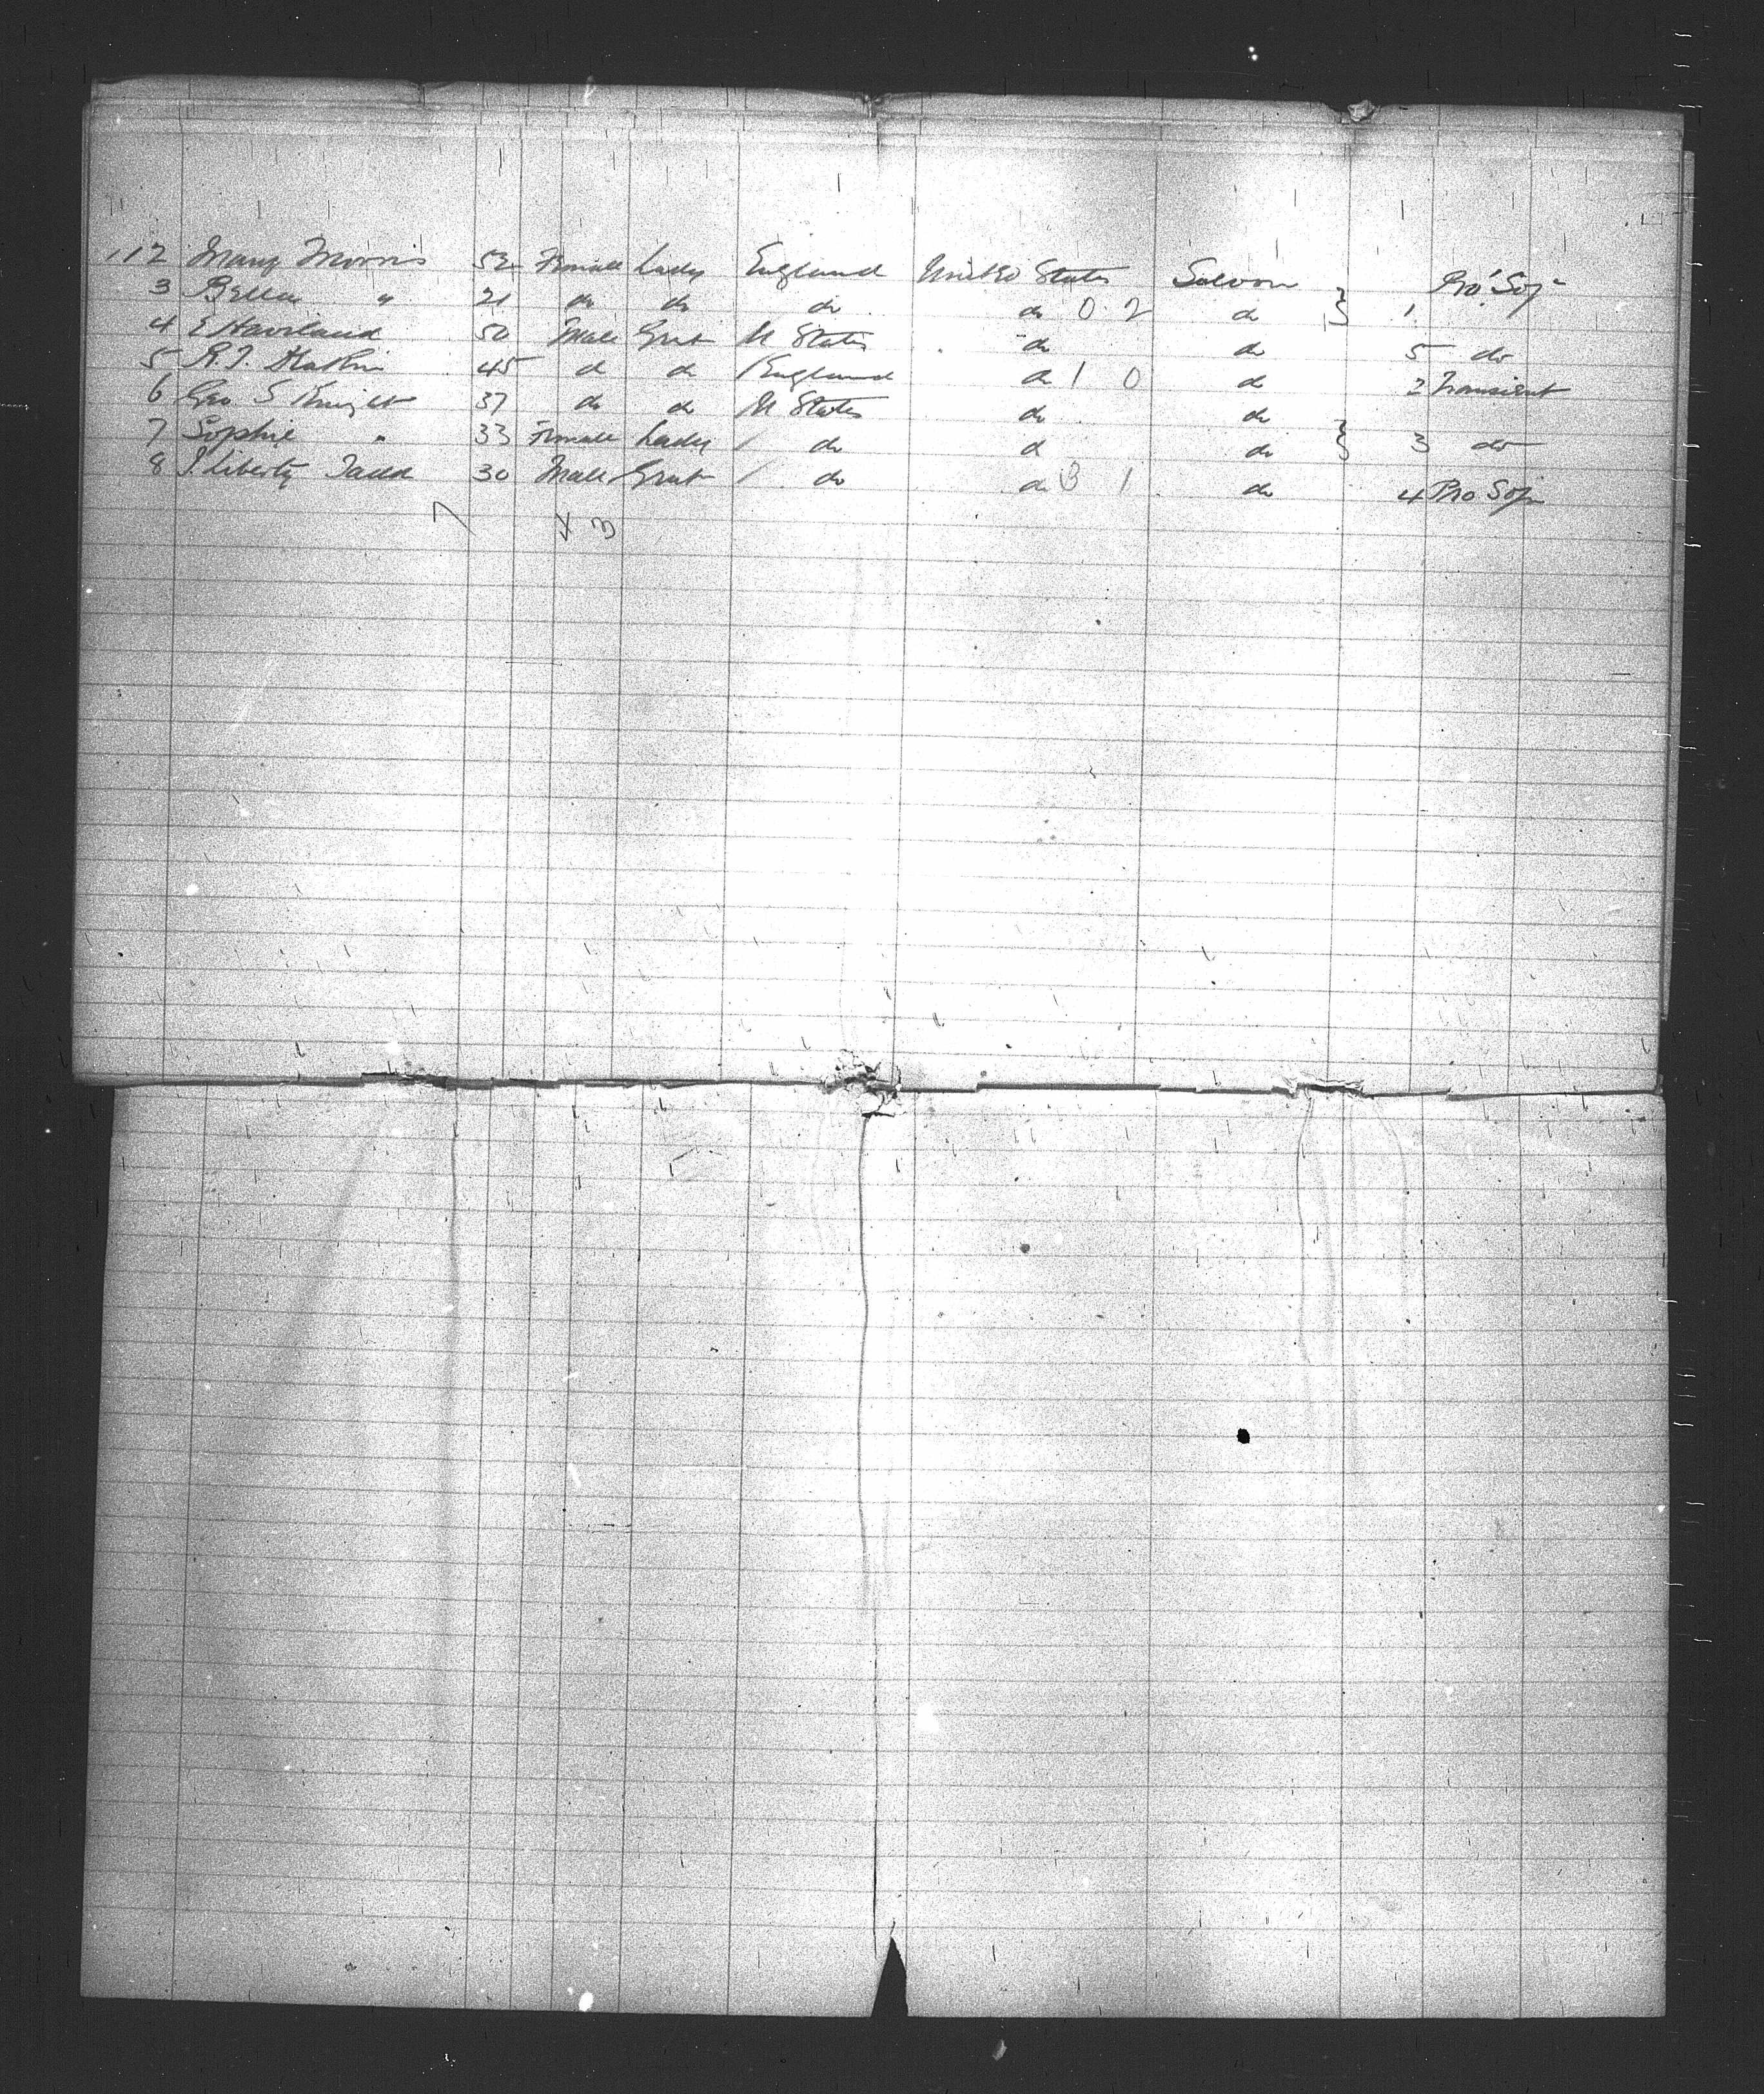 112 Mary Morris 52 Female Lady England United States Saloon Pro. Soj-
3 Bella " 21 do do do do 0 2 do } 1
4 E Haviland 50 Male Gent U States do do 5 do
5 R. J. 45 do do England do 1 0 do 2 Transient
6 Geo S Knight 37 do do U States do do
7 Sophie " 33 Female Lady / do do do } 3 do
8 J Liberty Tadd 30 Male Gent / do do 3 1 do 4 Pro Soj
7 4 3